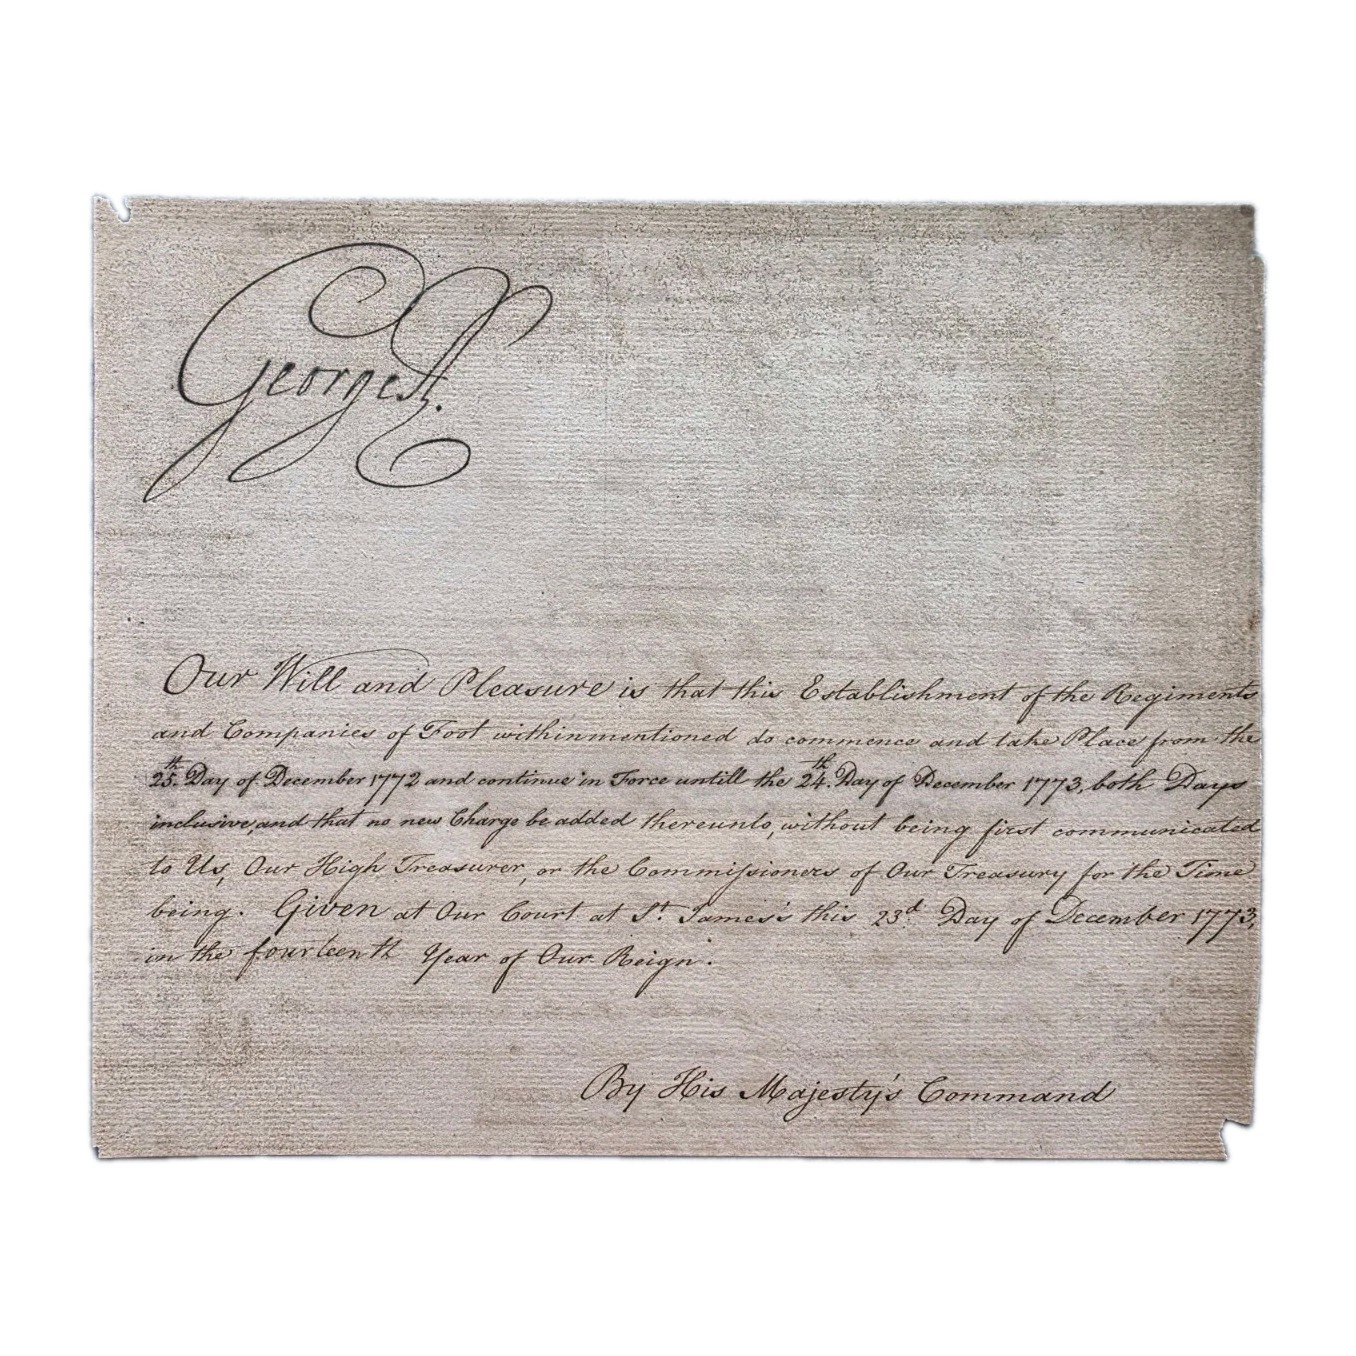 George R.
Our Will and Pleasure is that this Establishment of the Regiments
and Companies of Foot withinmentioned do commence and take Place from the
25th. Day of December 1772 and continue in Force untill the 24th. Day of December 1773, both Days
inclusive, and that no new Charge be added thereunto, without being first communicated
to Us, Our High Treasurer, or the Commissioners of Our Treasury for the Time
being. Given at Our Court at St. James's this 23d. Day of December 1773,
in the fourteenth Year of Our Reign.
By His Majesty's Command